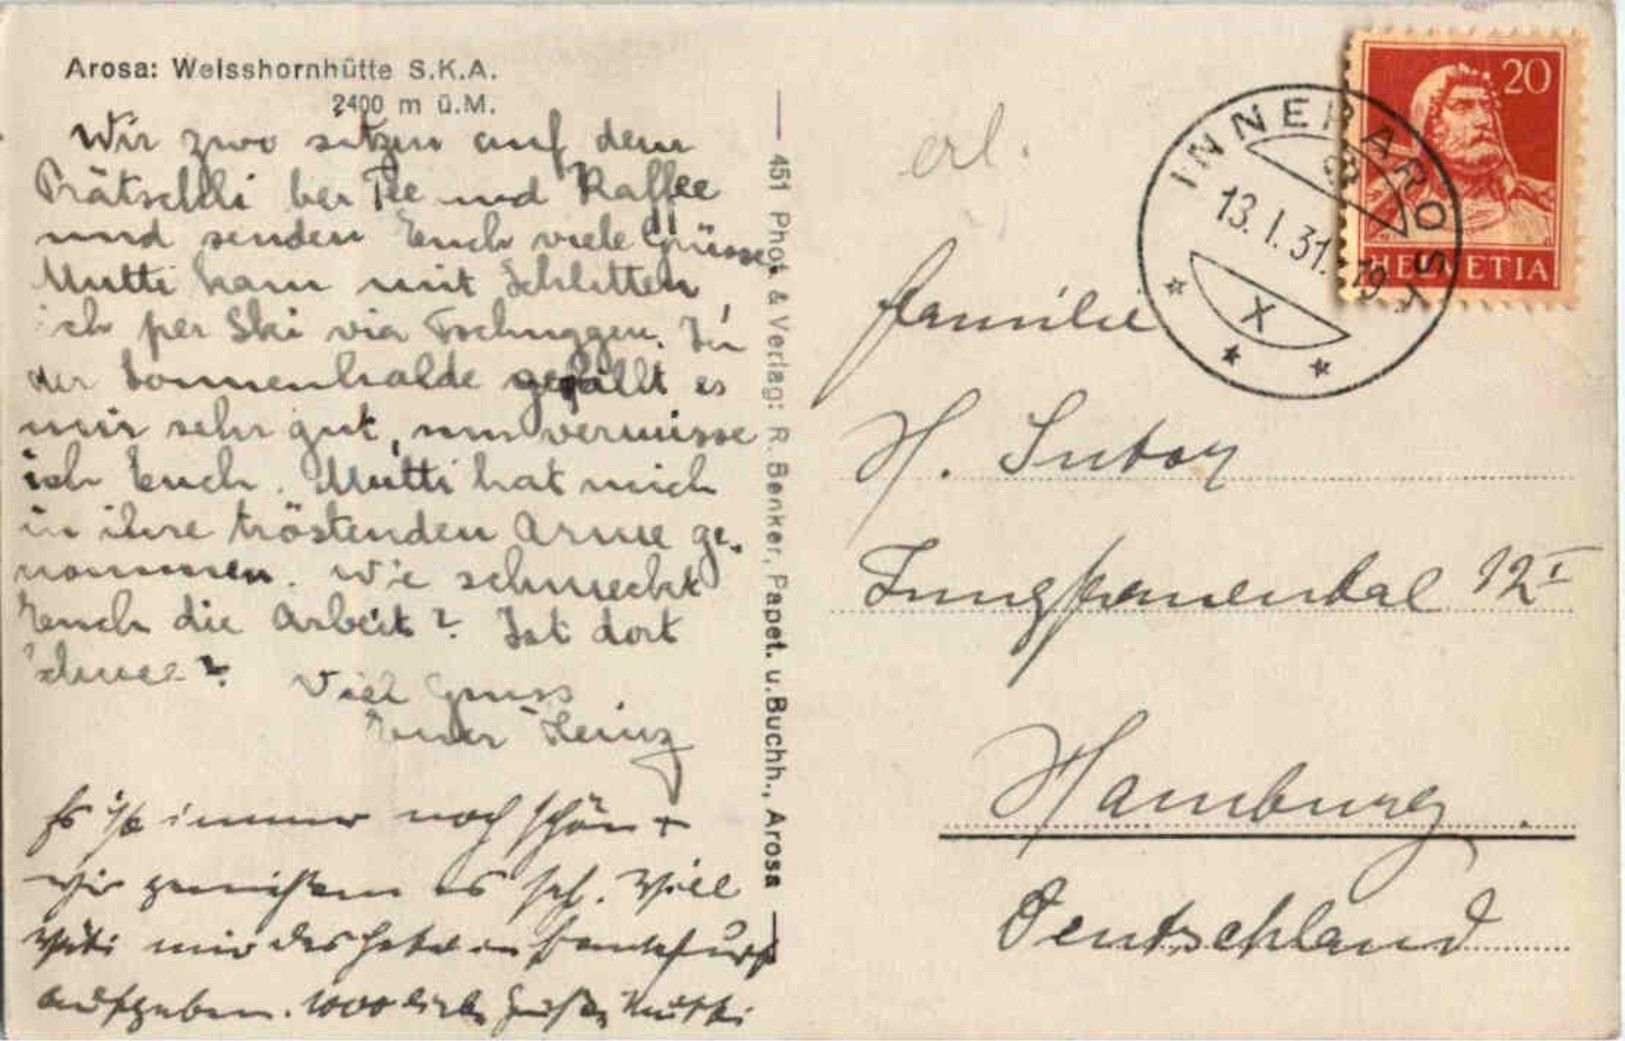 Arosa: Weisshornhütte S.K.A.
2400 m ü.M.
Wir zwo sitzen auf dem
Prätschli bei Tee und Kaffee
und senden Euch viele Grüsse.
Mutti kam mit Schlitten,
ich per Ski via Tschuggen. In
der Sonnenhalde gefällt es
mir sehr gut, nun vermisse
ich Euch. Mutti hat mich
in ihre tröstenden Arme ge-
nommen. Wie schmeckt
Euch die Arbeit? Ist dort
Schnee? Viel Gruss
Euer Heinz
Es ist immer noch schön +
wir geniessen es sehr. Will
Väti mir das in Frankfurt
aufgeben. 1000 liebe Grüsse Mutti
451 Phot. & Verlag: R. Benker, Papet. u. Buchh., Arosa
erl.
INNERAROSA
13. I. 31. 19
X
20
HELVETIA
Familie
H. Sutor
Jungfrauental 12 I
Hamburg
Deutschland